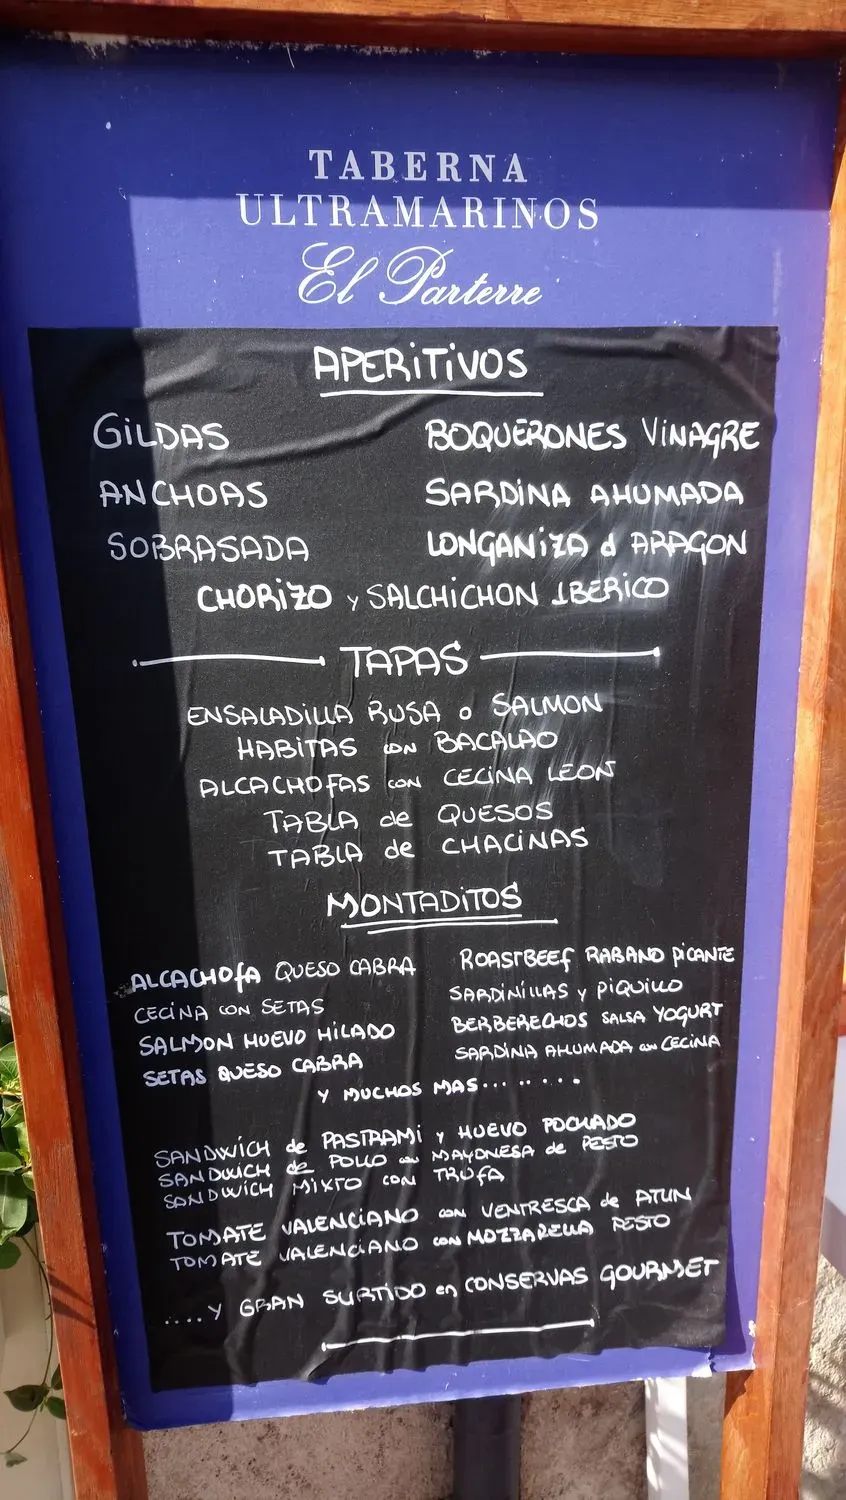 TABERNA
ULTRAMARINOS
El Parterre
APERITIVOS
GILDAS BOQUERONES VINAGRE
ANCHOAS SARDINA AHUMADA
SOBRASADA LONGANIZA d ARAGON
CHORIZO y SALCHICHON IBERICO
TAPAS
ENSALADILLA RUSA o SALMON
HABITAS CON BACALAO
ALCACHOFAS CON CECINA LEON
TABLA de QUESOS
TABLA de CHACINAS
MONTADITOS
ALCACHOFA QUESO CABRA
CECINA CON SETAS
SALMON HUEVO HILADO
SETAS QUESO CABRA
ROASTBEEF RABANO PICANTE
SARDINILLAS y PIQUILLO
BERBERECHOS SALSA YOGURT
SARDINA AHUMADA con CECINA
Y MUCHOS MAS........
SANDWICH de PASTRAMI y HUEVO POCHADO
SANDWICH de POLLO con MAYONESA de PESTO
SANDWICH MIXTO CON TRUFA
TOMATE VALENCIANO CON VENTRESCA de ATUN
TOMATE VALENCIANO CON MOZZARELLA PESTO
....Y GRAN SURTIDO en CONSERVAS GOURMET